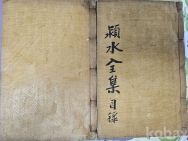 潁水全集目錄
kobay